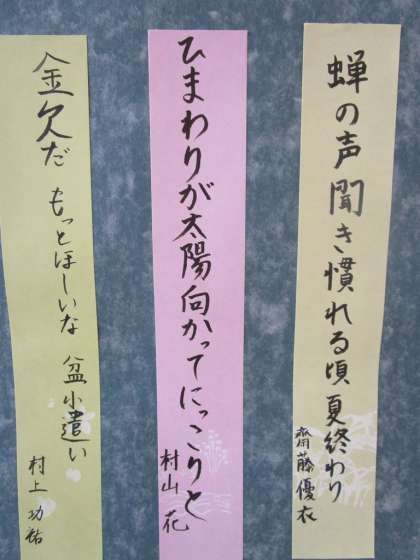 蝉の声聞き慣れる頃夏終わり
齋藤優衣
ひまわりが太陽向かってにっこりと
村山花
金欠だもっとほしいな盆小遣い
村上功祐